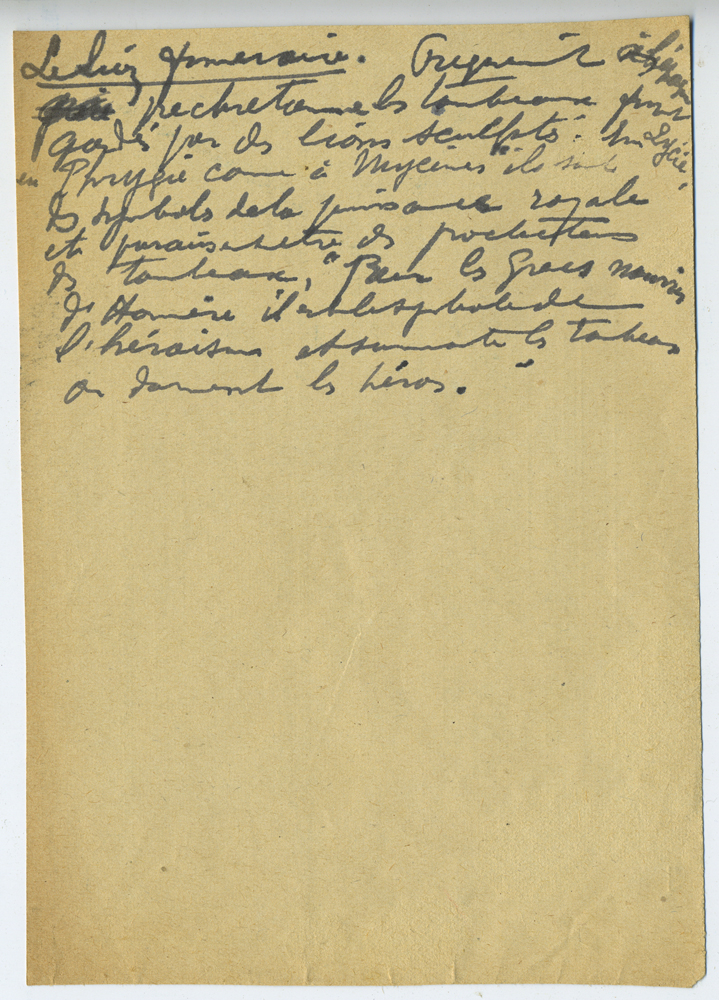 Le lion funéraire. Fréquent à l'époque
préchrétienne les tombeaux sont
gardés par des lions sculptés. En Lycie,
en Phrygie come à Mycènes "ils sont
les symbols de la puissance royale
et paraissent etre des protecteurs
des tombeaux," Pour les Grecs nourris
d'Homère il est le symbole de
l'héroïsme et surmonte les tombeaux
ou dorment les héros."